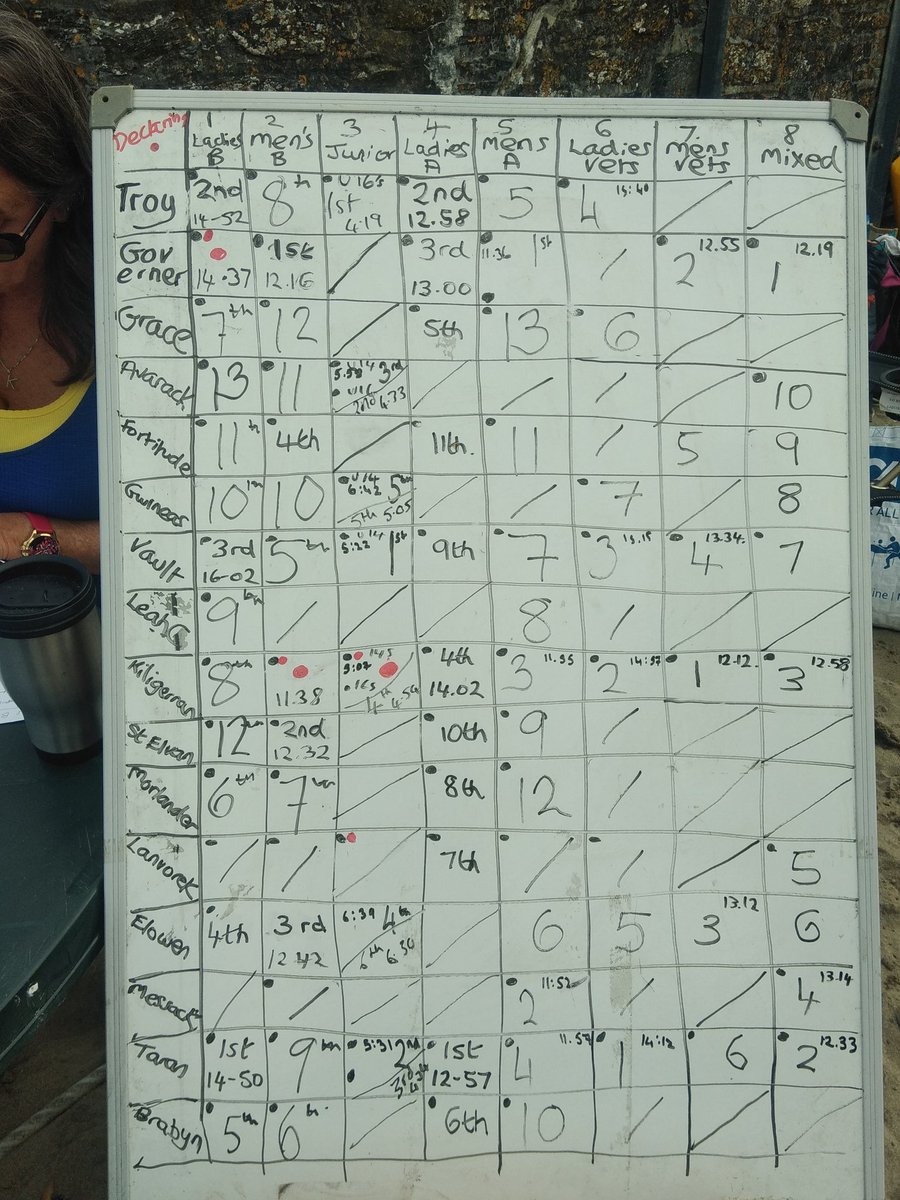 Declaring 1 Ladies B 2 men's B 3 Junior 4 Ladies A 5 mens A 6 Ladies vets 7 mens vets 8 mixed
Troy 2nd 14-52 8th U16's 1st 4.19 2nd 12.58 5 4 15:40 / /
Governer 14.37 1st 12.16 / 3rd 13.00 11.36 1st / 2 12.55 1 12.19
Grace 7th 12 / 5th 13 6 / /
Avarack 13 11 U14 3rd U16 4.33 / / / / 10
Fortitude 11th 4th / 11th. 11 / 5 9
Gwineas 10th 10 U14 6:42 5th 5th 5.05 / / 7 / 8
Vault 3rd 16-02 5th U14 5:22 1st 9th 7 3 4 13.34. 7
Leah C 9th / / / 8 / / /
Kiligerran 8th 11.38 4th 4th 14.02 3 11.55 2 14:57 1 12.12. 3 12.58
St Elvan 12th 2nd 12.32 / 10th 9 / / /
Morlander 6th 7th / 8th 12 / / /
Lanvorek / / / 7th / / / 5
Elowen 4th 3rd 12.42 6:39 4th 6th 6.30 / 6 5 3 13.12 6
/ / / / 2 11:52 / / 4 13.14
Taran 1st 14-50 9th 5:31 2nd 3rd 1st 12-57 4 11.57 1 14:12 6 2 12.33
Brabyn 5th 6th / 6th 10 / / /